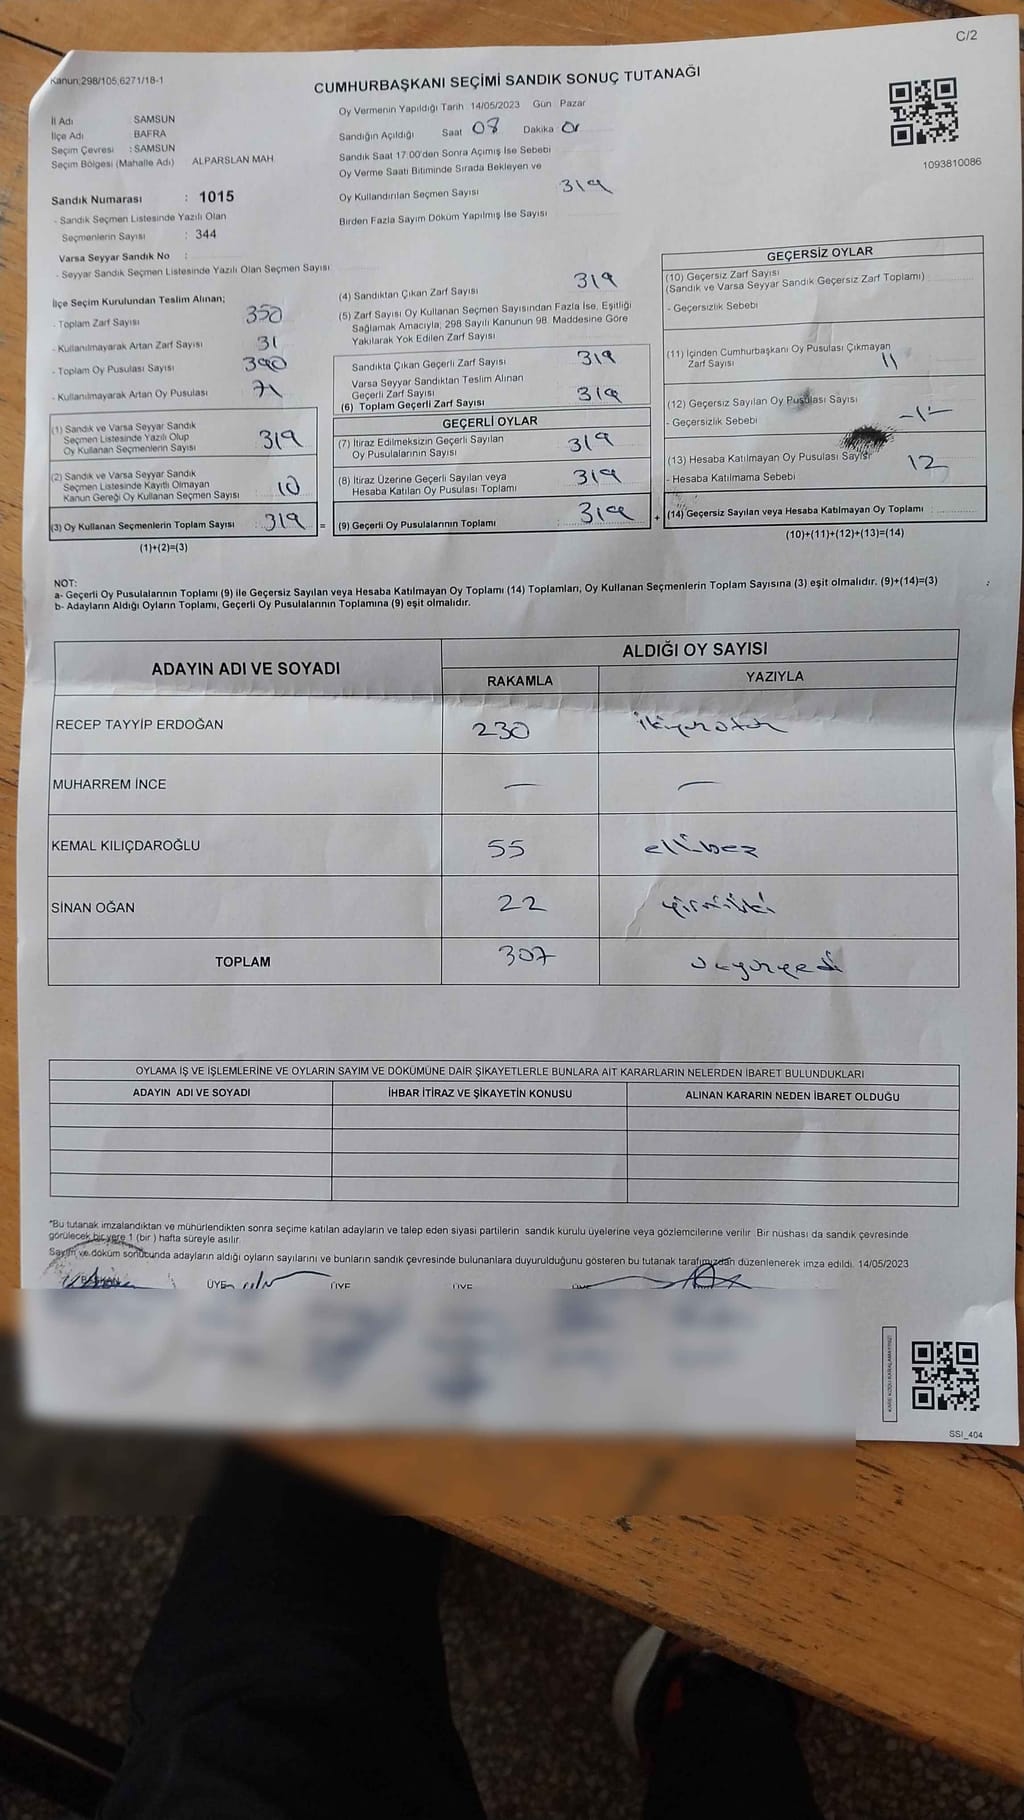 C/2
Kanun:298/105,6271/18-1
CUMHURBAŞKANI SEÇİMİ SANDIK SONUÇ TUTANAĞI
İl Adı SAMSUN
İlçe Adı BAFRA
Seçim Çevresi : SAMSUN
Seçim Bölgesi (Mahalle Adı) ALPARSLAN MAH.
Sandık Numarası : 1015
- Sandık Seçmen Listesinde Yazılı Olan
Seçmenlerin Sayısı : 344
Varsa Seyyar Sandık No :
- Seyyar Sandık Seçmen Listesinde Yazılı Olan Seçmen Sayısı
Oy Vermenin Yapıldığı Tarih 14/05/2023 Gün Pazar
Sandığın Açıldığı Saat 08 Dakika 01
Sandık Saat 17:00'den Sonra Açımış İse Sebebi
Oy Verme Saati Bitiminde Sırada Bekleyen ve
Oy Kullandırılan Seçmen Sayısı 319
Birden Fazla Sayım Döküm Yapılmış İse Sayısı
1093810086
İlçe Seçim Kurulundan Teslim Alınan;
- Toplam Zarf Sayısı 350
- Kullanılmayarak Artan Zarf Sayısı 31
- Toplam Oy Pusulası Sayısı 390
- Kullanılmayarak Artan Oy Pusulası 71
(1) Sandık ve Varsa Seyyar Sandık
Seçmen Listesinde Yazılı Olup
Oy Kullanan Seçmenlerin Sayısı 319
(2) Sandık ve Varsa Seyyar Sandık
Seçmen Listesinde Kayıtlı Olmayan
Kanun Gereği Oy Kullanan Seçmen Sayısı 10
(3) Oy Kullanan Seçmenlerin Toplam Sayısı 319 =
(1)+(2)=(3)
(4) Sandıktan Çıkan Zarf Sayısı 319
(5) Zarf Sayısı Oy Kullanan Seçmen Sayısından Fazla İse, Eşitliği
Sağlamak Amacıyla; 298 Sayılı Kanunun 98. Maddesine Göre
Yakılarak Yok Edilen Zarf Sayısı
Sandıkta Çıkan Geçerli Zarf Sayısı 319
Varsa Seyyar Sandıktan Teslim Alınan
Geçerli Zarf Sayısı
(6) Toplam Geçerli Zarf Sayısı 319
GEÇERLİ OYLAR
(7) İtiraz Edilmeksizin Geçerli Sayılan
Oy Pusulalarının Sayısı 319
(8) İtiraz Üzerine Geçerli Sayılan veya
Hesaba Katılan Oy Pusulası Toplamı 319
(9) Geçerli Oy Pusulalarının Toplamı 319 +
GEÇERSİZ OYLAR
(10) Geçersiz Zarf Sayısı
(Sandık ve Varsa Seyyar Sandık Geçersiz Zarf Toplamı)
- Geçersizlik Sebebi
(11) İçinden Cumhurbaşkanı Oy Pusulası Çıkmayan
Zarf Sayısı 11
(12) Geçersiz Sayılan Oy Pusulası Sayısı
- Geçersizlik Sebebi -1-
(13) Hesaba Katılmayan Oy Pusulası Sayısı 12
- Hesaba Katılmama Sebebi
(14) Geçersiz Sayılan veya Hesaba Katılmayan Oy Toplamı
(10)+(11)+(12)+(13)=(14)
NOT:
a- Geçerli Oy Pusulalarının Toplamı (9) ile Geçersiz Sayılan veya Hesaba Katılmayan Oy Toplamı (14) Toplamları, Oy Kullanan Seçmenlerin Toplam Sayısına (3) eşit olmalıdır. (9)+(14)=(3)
b- Adayların Aldığı Oyların Toplamı, Geçerli Oy Pusulalarının Toplamına (9) eşit olmalıdır.
ADAYIN ADI VE SOYADI
ALDIĞI OY SAYISI
RAKAMLA YAZIYLA
RECEP TAYYİP ERDOĞAN 230 ikiyüzotuz
MUHARREM İNCE — —
KEMAL KILIÇDAROĞLU 55 ellibeş
SİNAN OĞAN 22 yirmiiki
TOPLAM 307 üçyüzyedi
OYLAMA İŞ VE İŞLEMLERİNE VE OYLARIN SAYIM VE DÖKÜMÜNE DAİR ŞİKAYETLERLE BUNLARA AİT KARARLARIN NELERDEN İBARET BULUNDUKLARI
ADAYIN ADI VE SOYADI İHBAR İTİRAZ VE ŞİKAYETİN KONUSU ALINAN KARARIN NEDEN İBARET OLDUĞU
*Bu tutanak imzalandıktan ve mühürlendikten sonra seçime katılan adayların ve talep eden siyasi partilerin sandık kurulu üyelerine veya gözlemcilerine verilir. Bir nüshası da sandık çevresinde
görülecek bir yere 1 (bir ) hafta süreyle asılır.
Sayım ve döküm sonucunda adayların aldığı oyların sayılarını ve bunların sandık çevresinde bulunanlara duyurulduğunu gösteren bu tutanak tarafımızdan düzenlenerek imza edildi. 14/05/2023
BAŞKAN ÜYE ÜYE ÜYE ÜYE
SSI_404